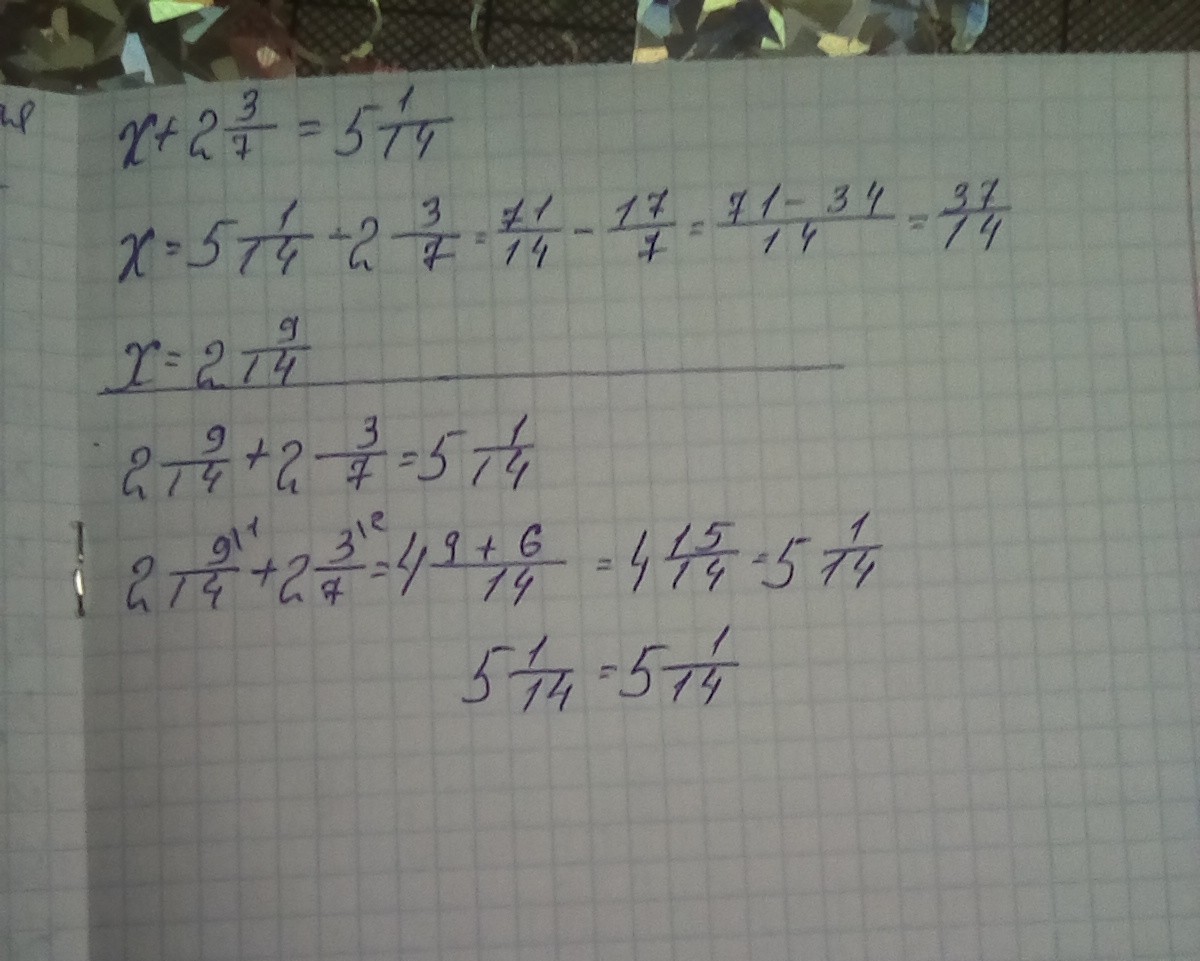 ия
x + 2 3/7 = 5 1/14
x = 5 1/14 - 2 3/7 = 71/14 - 17/7 = (71 - 34)/14 = 37/14
x = 2 9/14
2 9/14 + 2 3/7 = 5 1/14
2 9\1/14 + 2 3\2/7 = 4 (9 + 6)/14 = 4 15/14 = 5 1/14
5 1/14 = 5 1/14